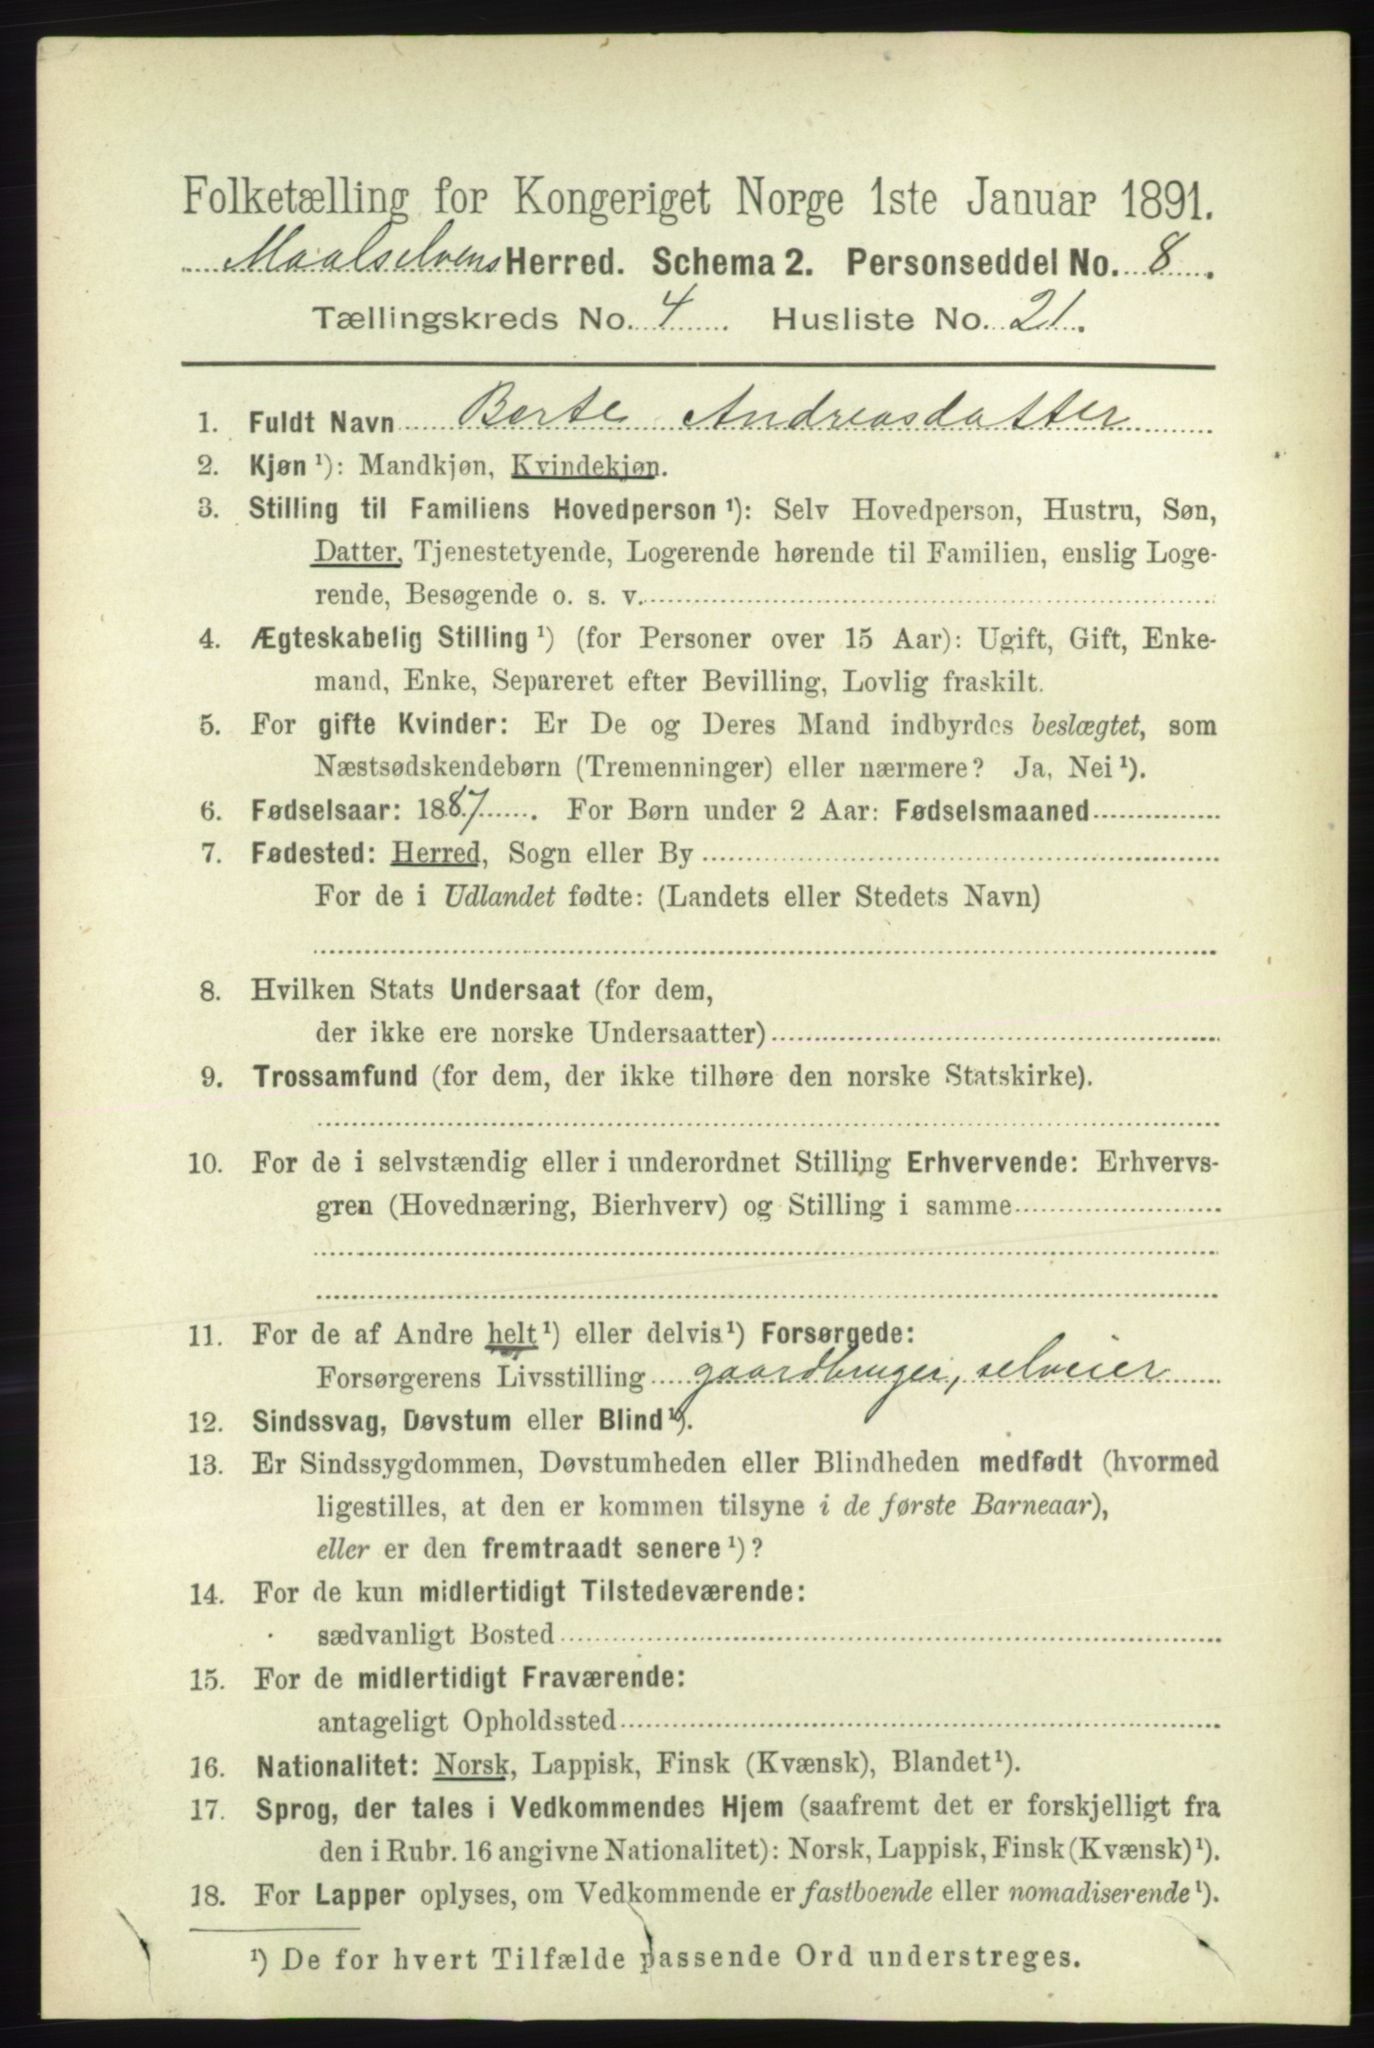 Folketælling for Kongeriget Norge 1ste Januar 1891.
Maalselvens Herred. Schema 2. Personseddel No. 8.
Tællingskreds No. 4 Husliste No. 21.
1. Fuldt Navn Berte Andreasdatter
2. Kjøn ¹): Mandkjøn, Kvindekjøn.
3. Stilling til Familiens Hovedperson ¹): Selv Hovedperson, Hustru, Søn,
Datter, Tjenestetyende, Logerende hørende til Familien, enslig Loge-
rende, Besøgende o. s. v.
4. Ægteskabelig Stilling ¹) (for Personer over 15 Aar): Ugift, Gift, Enke-
mand, Enke, Separeret efter Bevilling, Lovlig fraskilt.
5. For gifte Kvinder: Er De og Deres Mand indbyrdes beslægtet, som
Næstsødskendebørn (Tremenninger) eller nærmere? Ja, Nei ¹).
6. Fødselsaar: 1887. For Børn under 2 Aar: Fødselsmaaned
7. Fødested: Herred, Sogn eller By
For de i Udlandet fødte: (Landets eller Stedets Navn)
8. Hvilken Stats Undersaat (for dem,
der ikke ere norske Undersaatter)
9. Trossamfund (for dem, der ikke tilhøre den norske Statskirke).
10. For de i selvstændig eller i underordnet Stilling Erhvervende: Erhvervs-
gren (Hovednæring, Bierhverv) og Stilling i samme
11. For de af Andre helt ¹) eller delvis ¹) Forsørgede:
Forsørgerens Livsstilling gaardbruger, selveier
12. Sindssvag, Døvstum eller Blind ¹).
13. Er Sindssygdommen, Døvstumheden eller Blindheden medfødt (hvormed
ligestilles, at den er kommen tilsyne i de første Barneaar),
eller er den fremtraadt senere ¹)?
14. For de kun midlertidigt Tilstedeværende:
sædvanligt Bosted
15. For de midlertidigt Fraværende:
antageligt Opholdssted
16. Nationalitet: Norsk, Lappisk, Finsk (Kvænsk), Blandet ¹).
17. Sprog, der tales i Vedkommendes Hjem (saafremt det er forskjelligt fra
den i Rubr. 16 angivne Nationalitet): Norsk, Lappisk, Finsk (Kvænsk) ¹).
18. For Lapper oplyses, om Vedkommende er fastboende eller nomadiserende ¹).
¹) De for hvert Tilfælde passende Ord understreges.